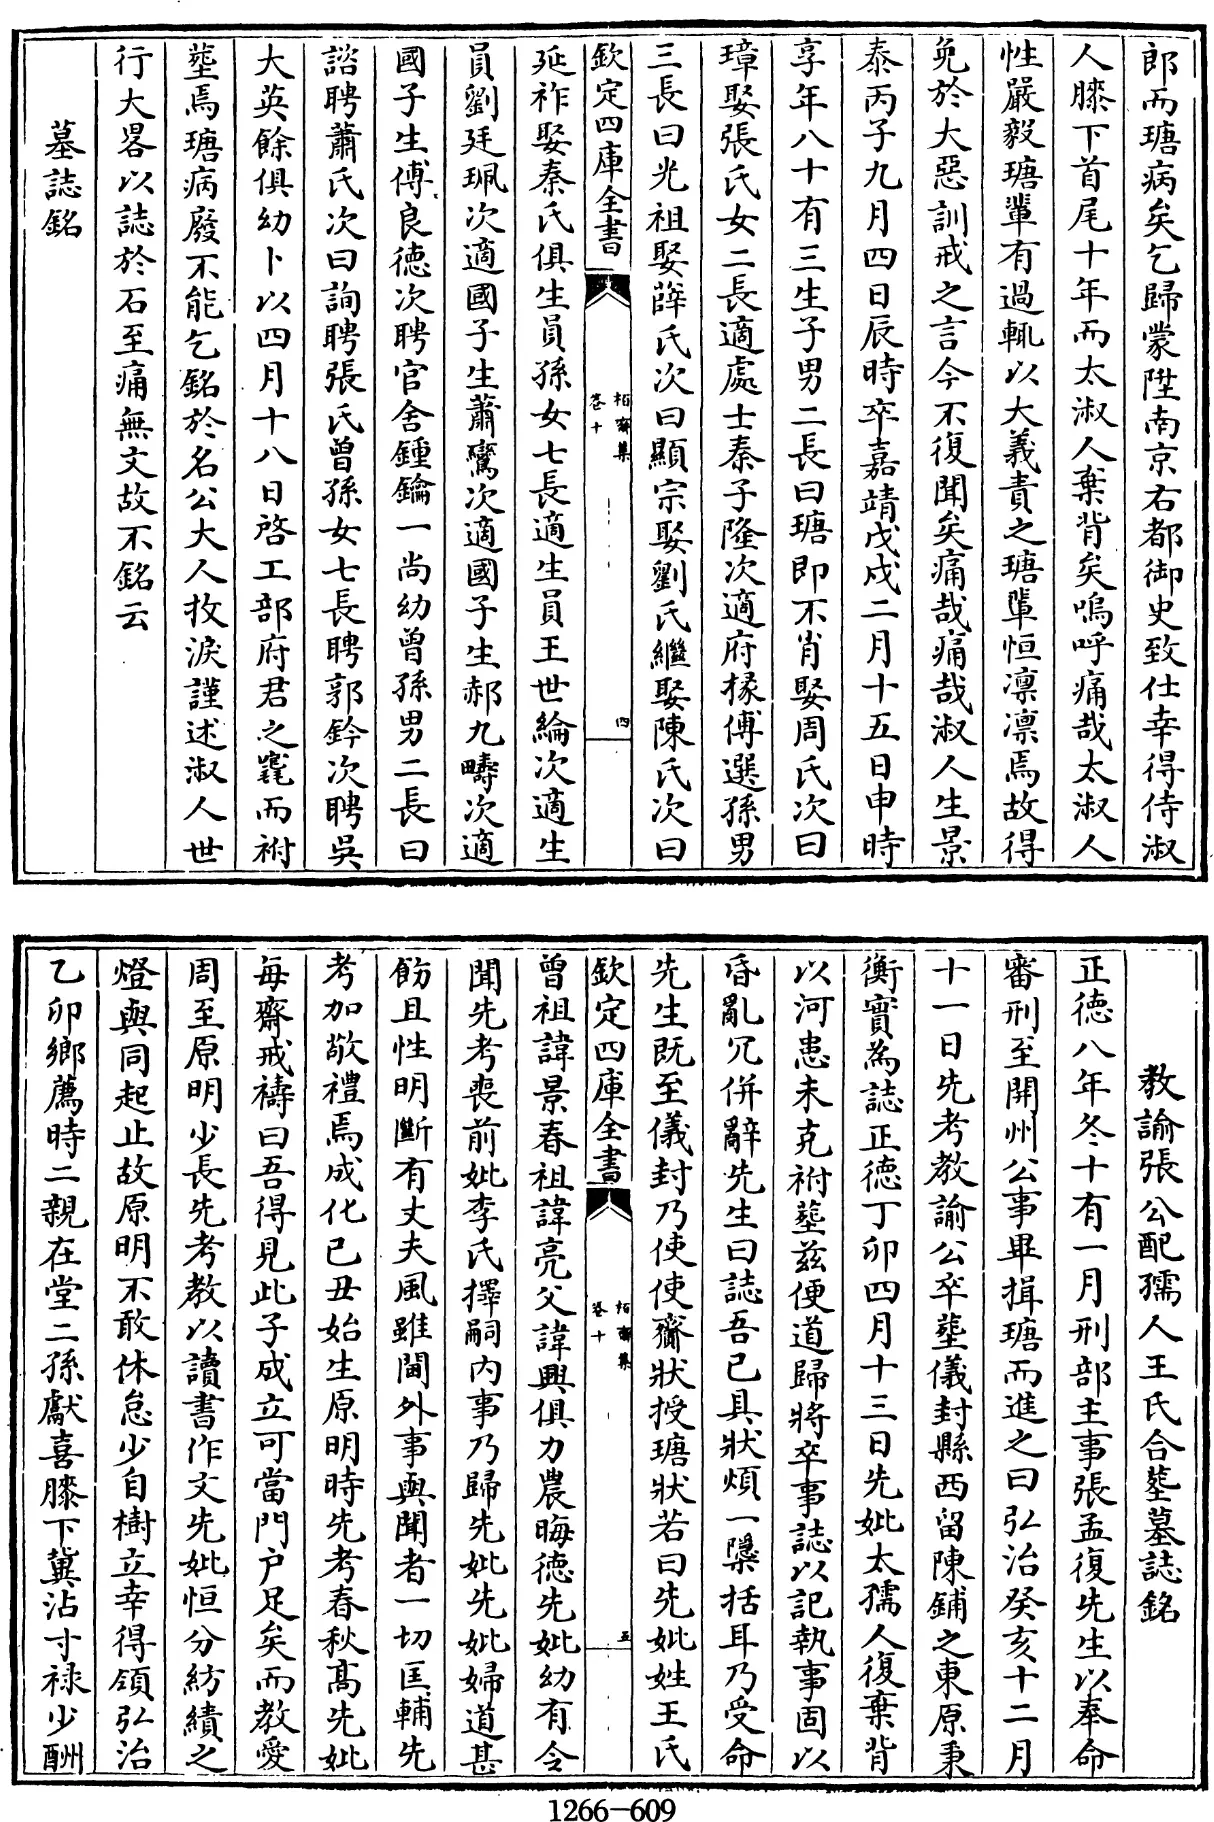 郎而瑭病矣乞歸蒙陞南京右都御史致仕幸得侍淑
人膝下首尾十年而太淑人棄背矣嗚呼痛哉太淑人
性嚴毅瑭輩有過輒以大義責之瑭輩恒凛凛焉故得
免於大惡訓戒之言今不復聞矣痛哉痛哉淑人生景
泰丙子九月四日辰時卒嘉靖戊戌二月十五日申時
享年八十有三生子男二長曰瑭即不肖娶周氏次曰
璋娶張氏女二長適處士秦子隆次適府掾傅選孫男
三長曰光祖娶薛氏次曰顯宗娶劉氏繼娶陳氏次曰
欽定四庫全書
柏齋集
卷十
四
延祚娶秦氏俱生員孫女七長適生員王世綸次適生
員劉廷珮次適國子生蕭鸞次適國子生郝九疇次適
國子生傅良德次聘官舍鍾鑰一尚幼曾孫男二長曰
諮聘蕭氏次曰詢聘張氏曾孫女七長聘郭鈐次聘吳
大英餘俱幼卜以四月十八日啓工部府君之竁而祔
塟焉瑭病廢不能乞銘於名公大人抆淚謹述淑人世
行大畧以誌於石至痛無文故不銘云
墓誌銘
教諭張公配孺人王氏合塟墓誌銘
正德八年冬十有一月刑部主事張孟復先生以奉命
審刑至開州公事畢揖瑭而進之曰弘治癸亥十二月
十一日先考教諭公卒塟儀封縣西留陳鋪之東原秉
衡實為誌正德丁卯四月十三日先妣太孺人復棄背
以河患未克祔塟兹便道歸將卒事誌以記執事固以
昏亂冗併辭先生曰誌吾已具狀煩一檃括耳乃受命
先生既至儀封乃使使齎狀授瑭狀若曰先妣姓王氏
欽定四庫全書
柏齋集
卷十
五
曾祖諱景春祖諱亮父諱興俱力農晦德先妣幼有令
聞先考喪前妣李氏擇嗣内事乃歸先妣先妣婦道甚
飭且性明斷有丈夫風雖閫外事與聞者一切匡輔先
考加敬禮焉成化已丑始生原明時先考春秋髙先妣
每齋戒禱曰吾得見此子成立可當門户足矣而教愛
周至原明少長先考教以讀書作文先妣恒分紡績之
燈與同起止故原明不敢休怠少自樹立幸得領弘治
乙卯鄉薦時二親在堂二孫獻喜膝下冀沾寸禄少酬
1266-609